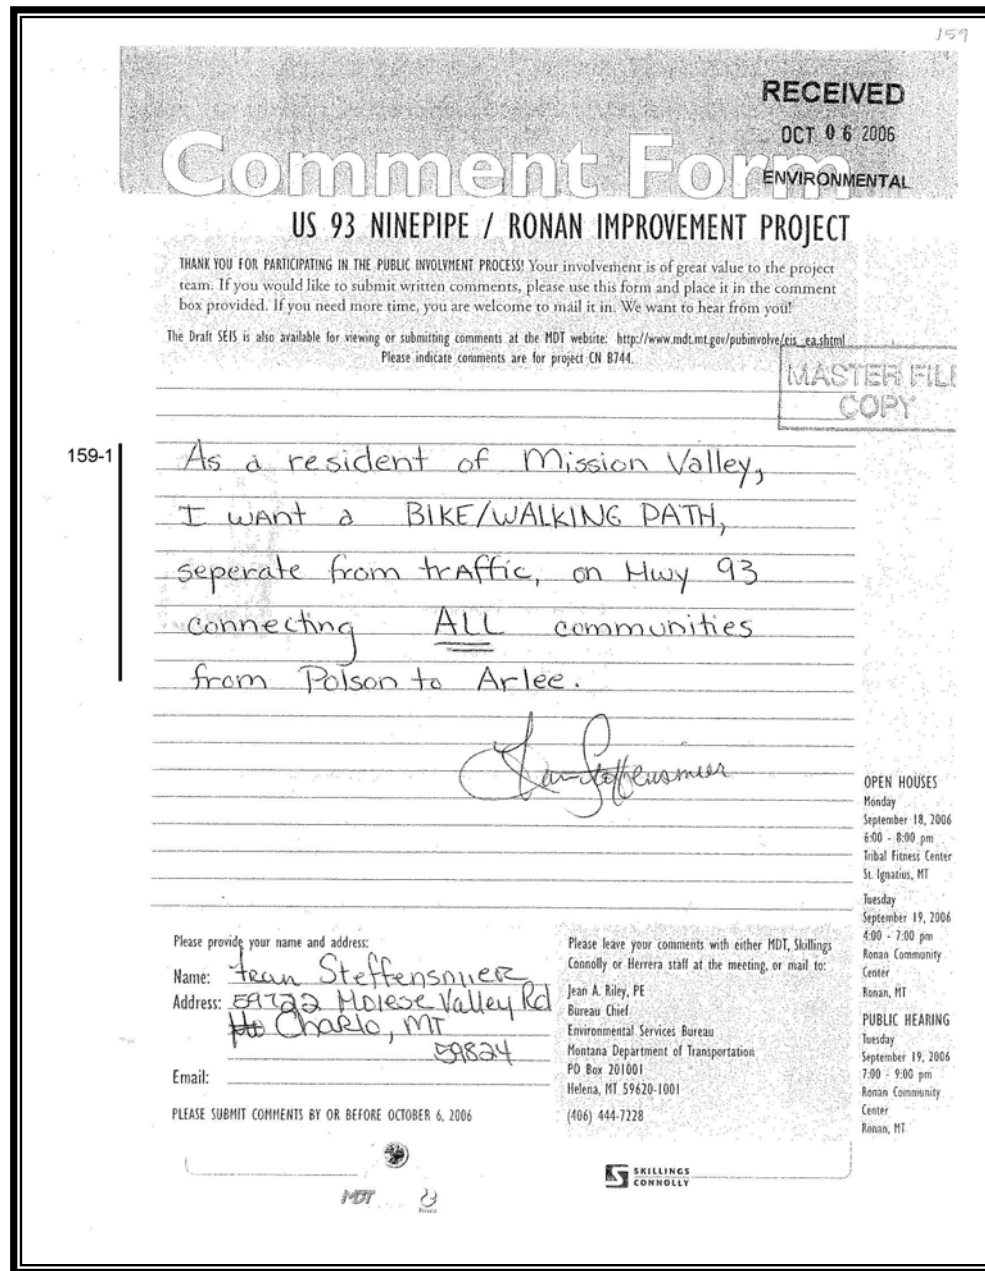 159
RECEIVED
OCT 06 2006
ENVIRONMENTAL
Comment Form
US 93 NINEPIPE / RONAN IMPROVEMENT PROJECT
THANK YOU FOR PARTICIPATING IN THE PUBLIC INVOLVMENT PROCESS! Your involvement is of great value to the project
team. If you would like to submit written comments, please use this form and place it in the comment
box provided. If you need more time, you are welcome to mail it in. We want to hear from you!
The Draft SEIS is also available for viewing or submitting comments at the MDT website: http://www.mdt.mt.gov/pubinvolve/eis_ea.shtml
Please indicate comments are for project CN B744.
MASTER FILE
COPY
159-1
As a resident of Mission Valley,
I want a BIKE/WALKING PATH,
seperate from traffic, on Hwy 93
connecting ALL communities
from Polson to Arlee.
Fran Steffensmier
Please provide your name and address:
Name: Fran Steffensmier
Address: 59722 Moiese Valley Rd
Charlo, MT
59824
Email:
PLEASE SUBMIT COMMENTS BY OR BEFORE OCTOBER 6, 2006
Please leave your comments with either MDT, Skillings
Connolly or Herrera staff at the meeting, or mail to:
Jean A. Riley, PE
Bureau Chief
Environmental Services Bureau
Montana Department of Transportation
PO Box 201001
Helena, MT 59620-1001
(406) 444-7228
OPEN HOUSES
Monday
September 18, 2006
6:00 - 8:00 pm
Tribal Fitness Center
St. Ignatius, MT
Tuesday
September 19, 2006
4:00 - 7:00 pm
Ronan Community
Center
Ronan, MT
PUBLIC HEARING
Tuesday
September 19, 2006
7:00 - 9:00 pm
Ronan Community
Center
Ronan, MT
MDT
SKILLINGS
CONNOLLY